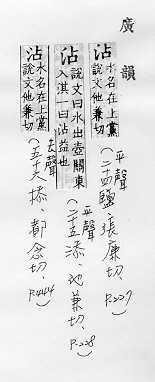 廣韻
沾
水名在上黨
說文他兼切
(平聲
二十四鹽、張廉切、P.227)
沾
說文曰水出壺關東
入淇一曰沾益也
(平聲
二十五添、他兼切、P.228)
沾
水名在上黨
說文他兼切
(去聲
五十六㮇、都念切、P.444)